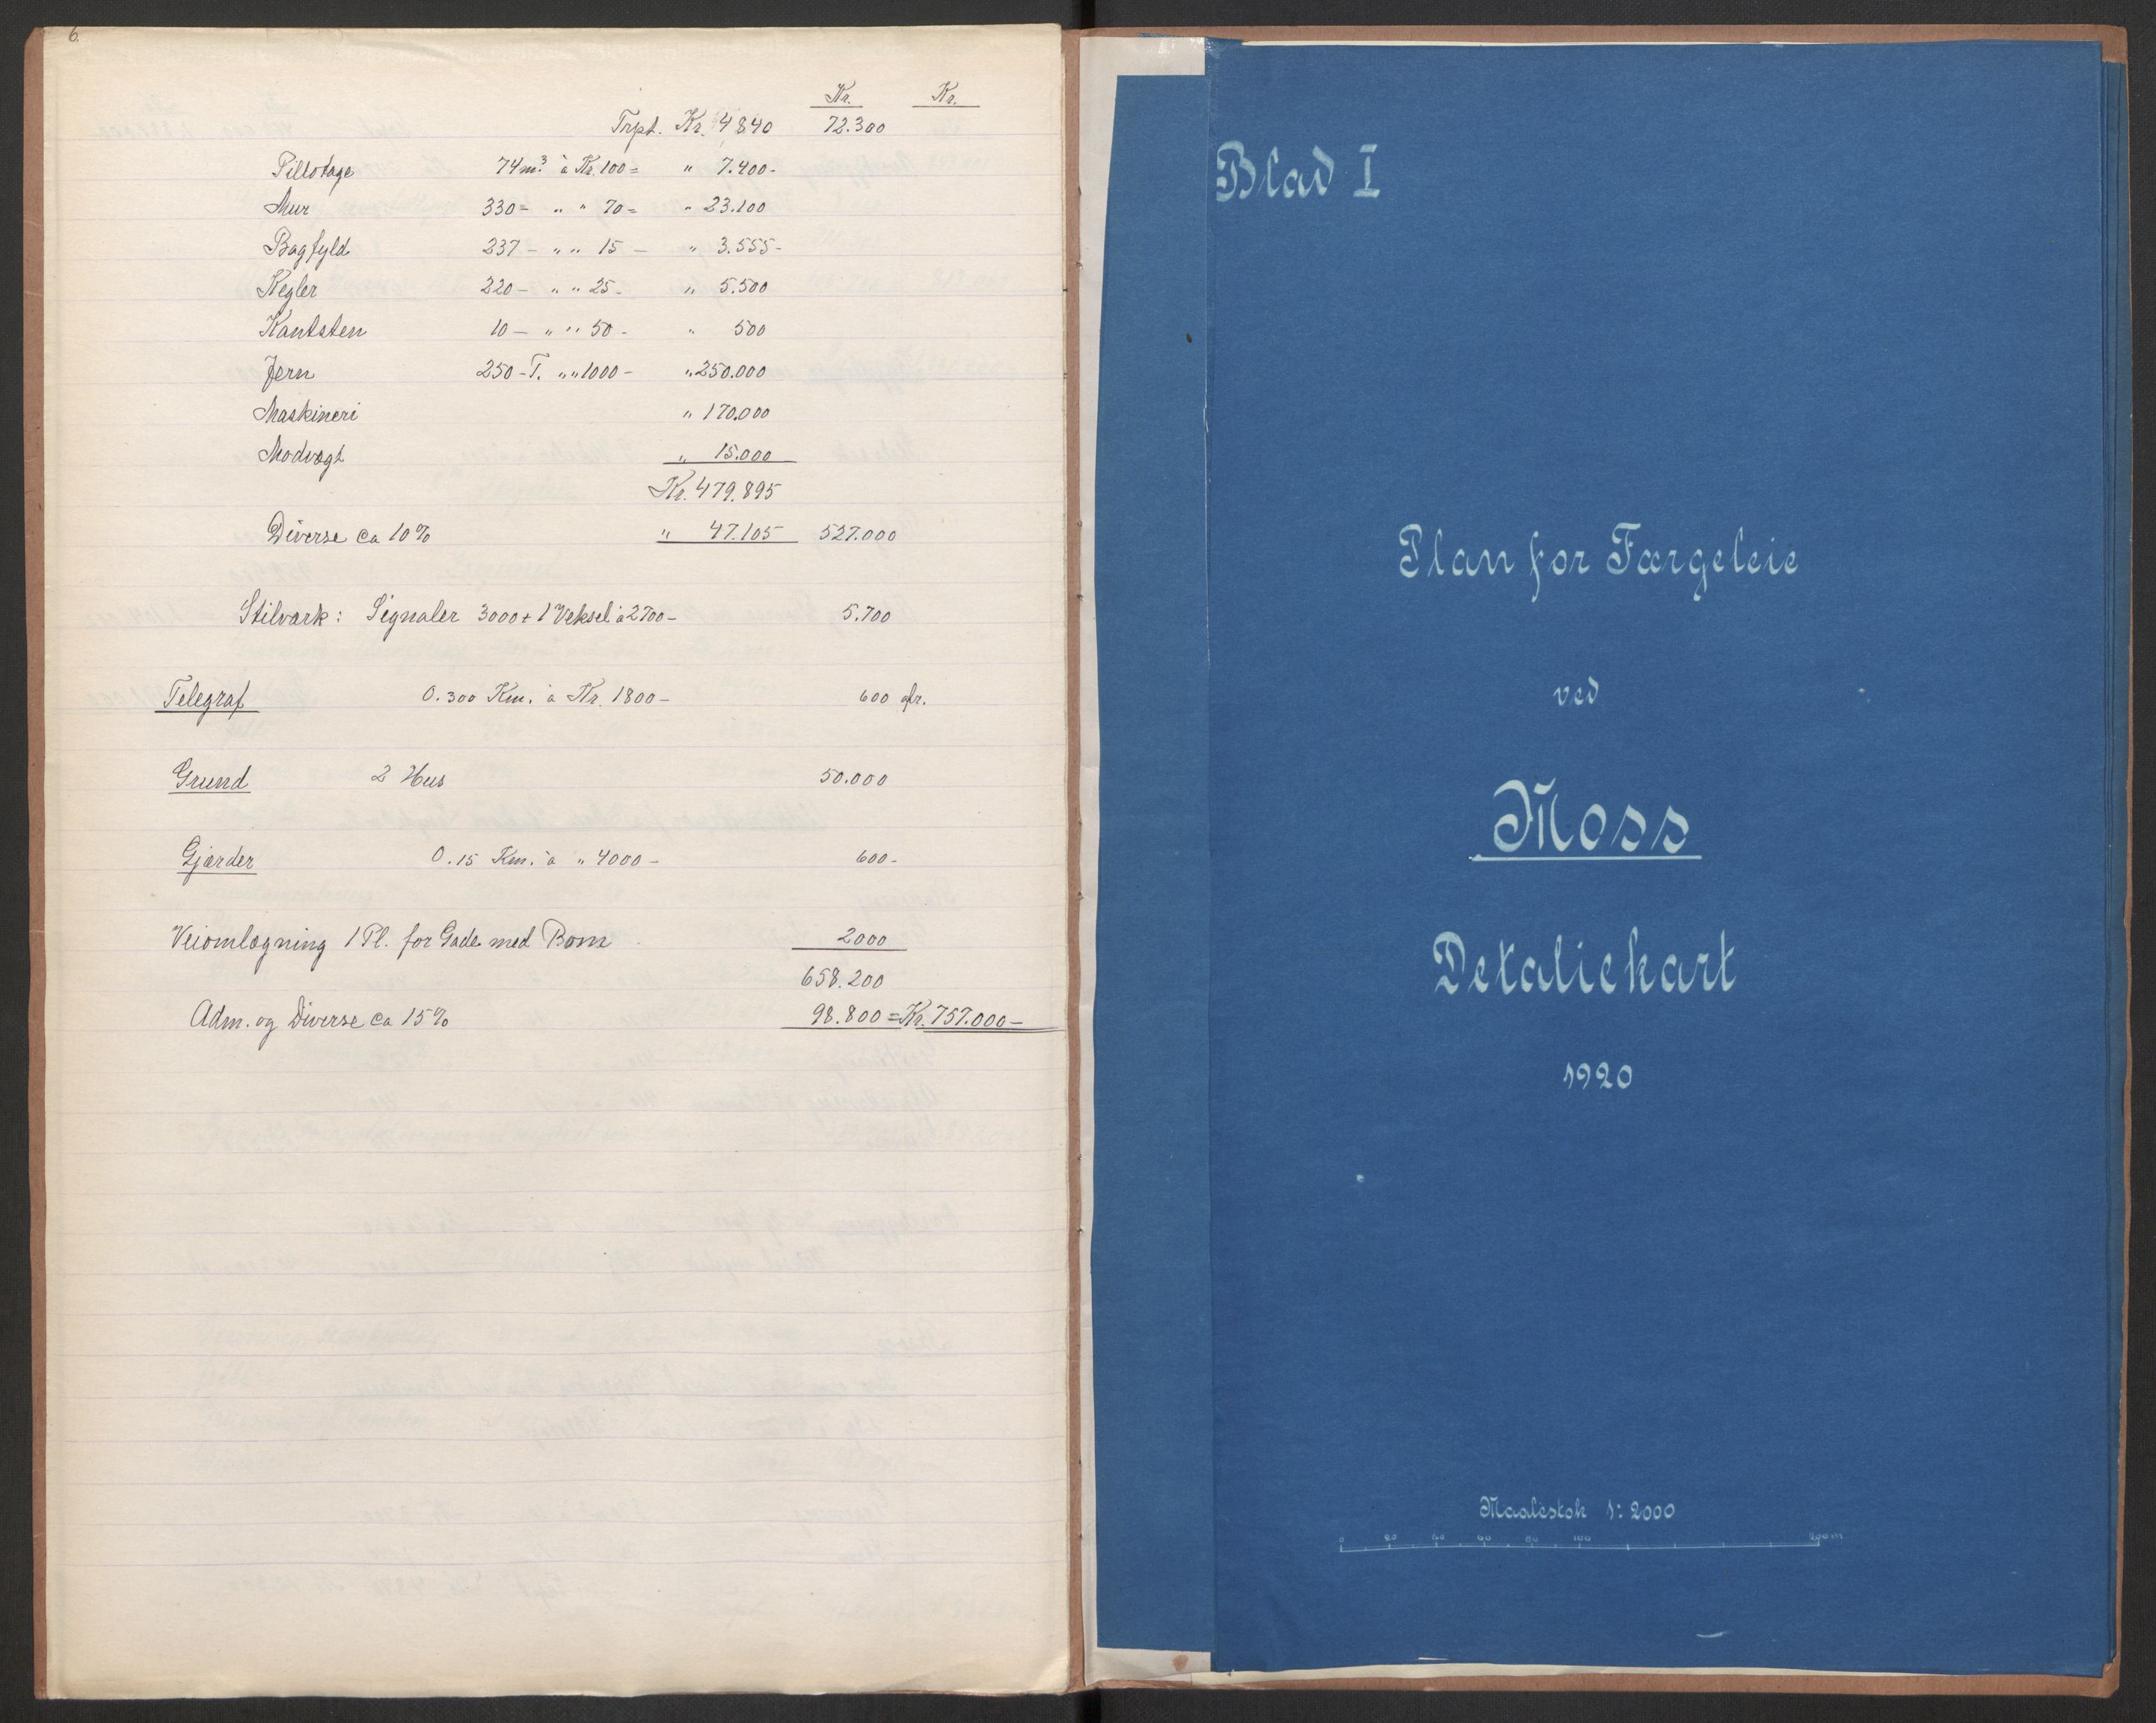 6.
Kr. Kr.
Trpt. Kr. 4840 72.300
Pillotage 74m³ à Kr. 100= " 7.400-
Mur 330= " " 70= " 23.100
Bagfyld 237- " " 15- " 3.555-
Kegler 220- " " 25- " 5.500
Kantsten 10- " " 50- " 500
Jern 250-T. " " 1000- " 250.000
Maskineri " 170.000
Modvægt " 15.000
Kr. 479.895
Diverse ca 10% " 47.105 527.000
Stilværk: Signaler 3000+1 Veksel à 2700- 5.700
Telegraf 0.300 Km. à Kr. 1800- 600 afr.
Grund 2 Hus 50.000
Gjærder 0.15 Km. à " 4000- 600-
Veiomlægning 1 Pl. for Gade med Bom 2000
658.200
Adm. og Diverse ca 15% 98.800=Kr. 757.000-
Blad I
Plan for Færgeleie
ved
Moss
Detaliekart
1920
Maalestok 1:2000
0 20 40 60 80 100 200m